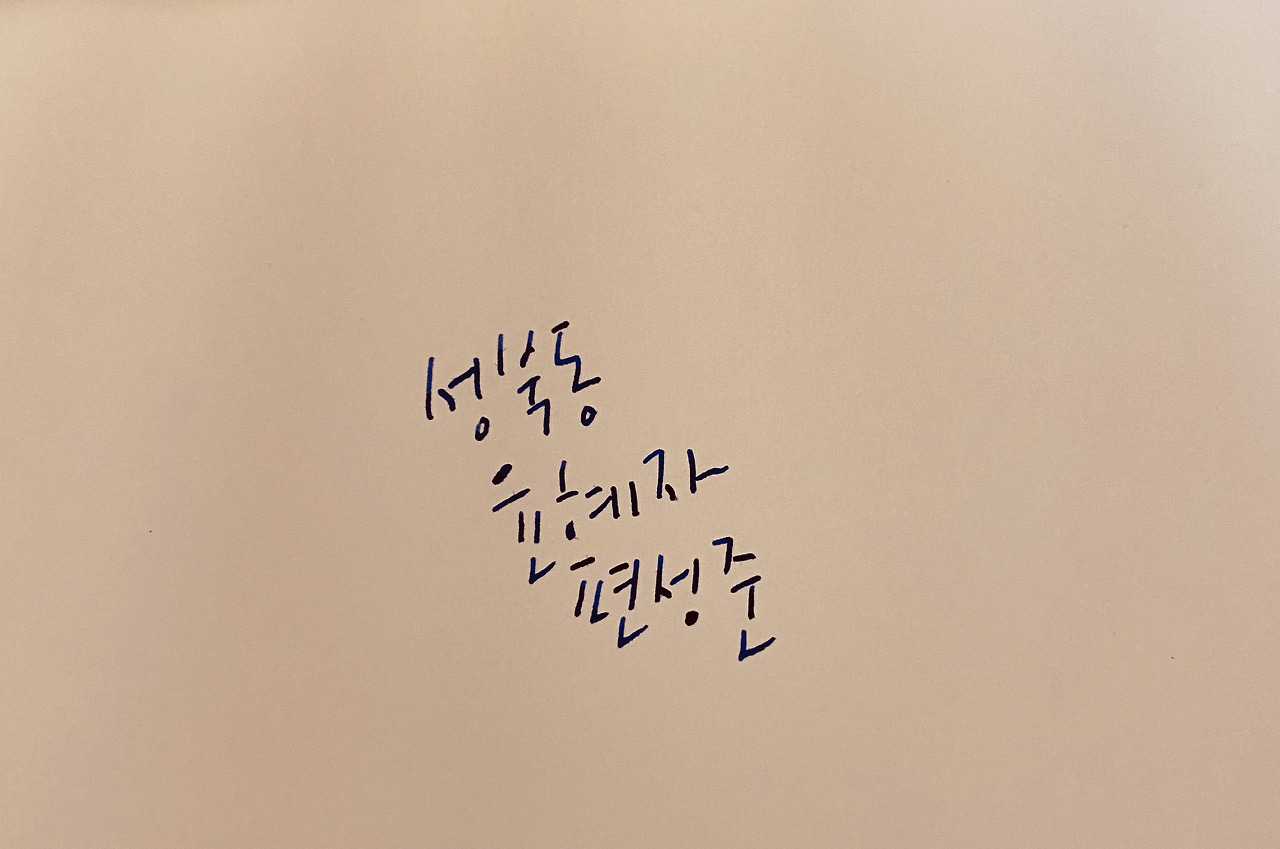 성북동
윤혜자
편성준